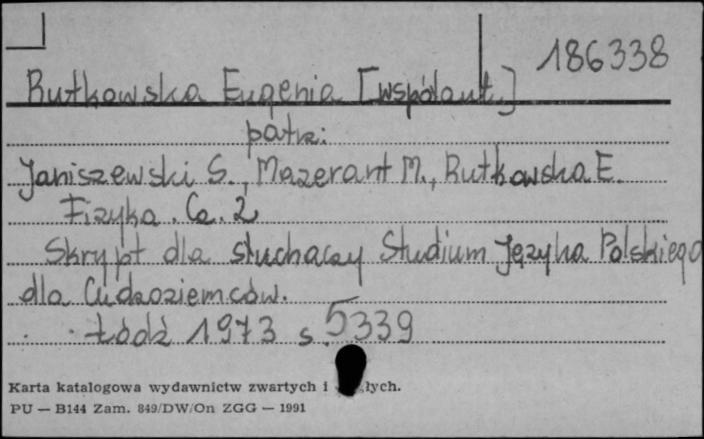 186338
Rutkowska Eugenia [współaut.]
patrz:
Janiszewski S., Mazerant M., Rutkowska E.
Fizyka. Cz. 2
Skrypt dla słuchaczy Studium Języka Polskiego
dla Cudzoziemców.
Łódź 1973 s. 339
Karta katalogowa wydawnictw zwartych i
PU — B144 Zam. 849/DW/On ZGG — 1991